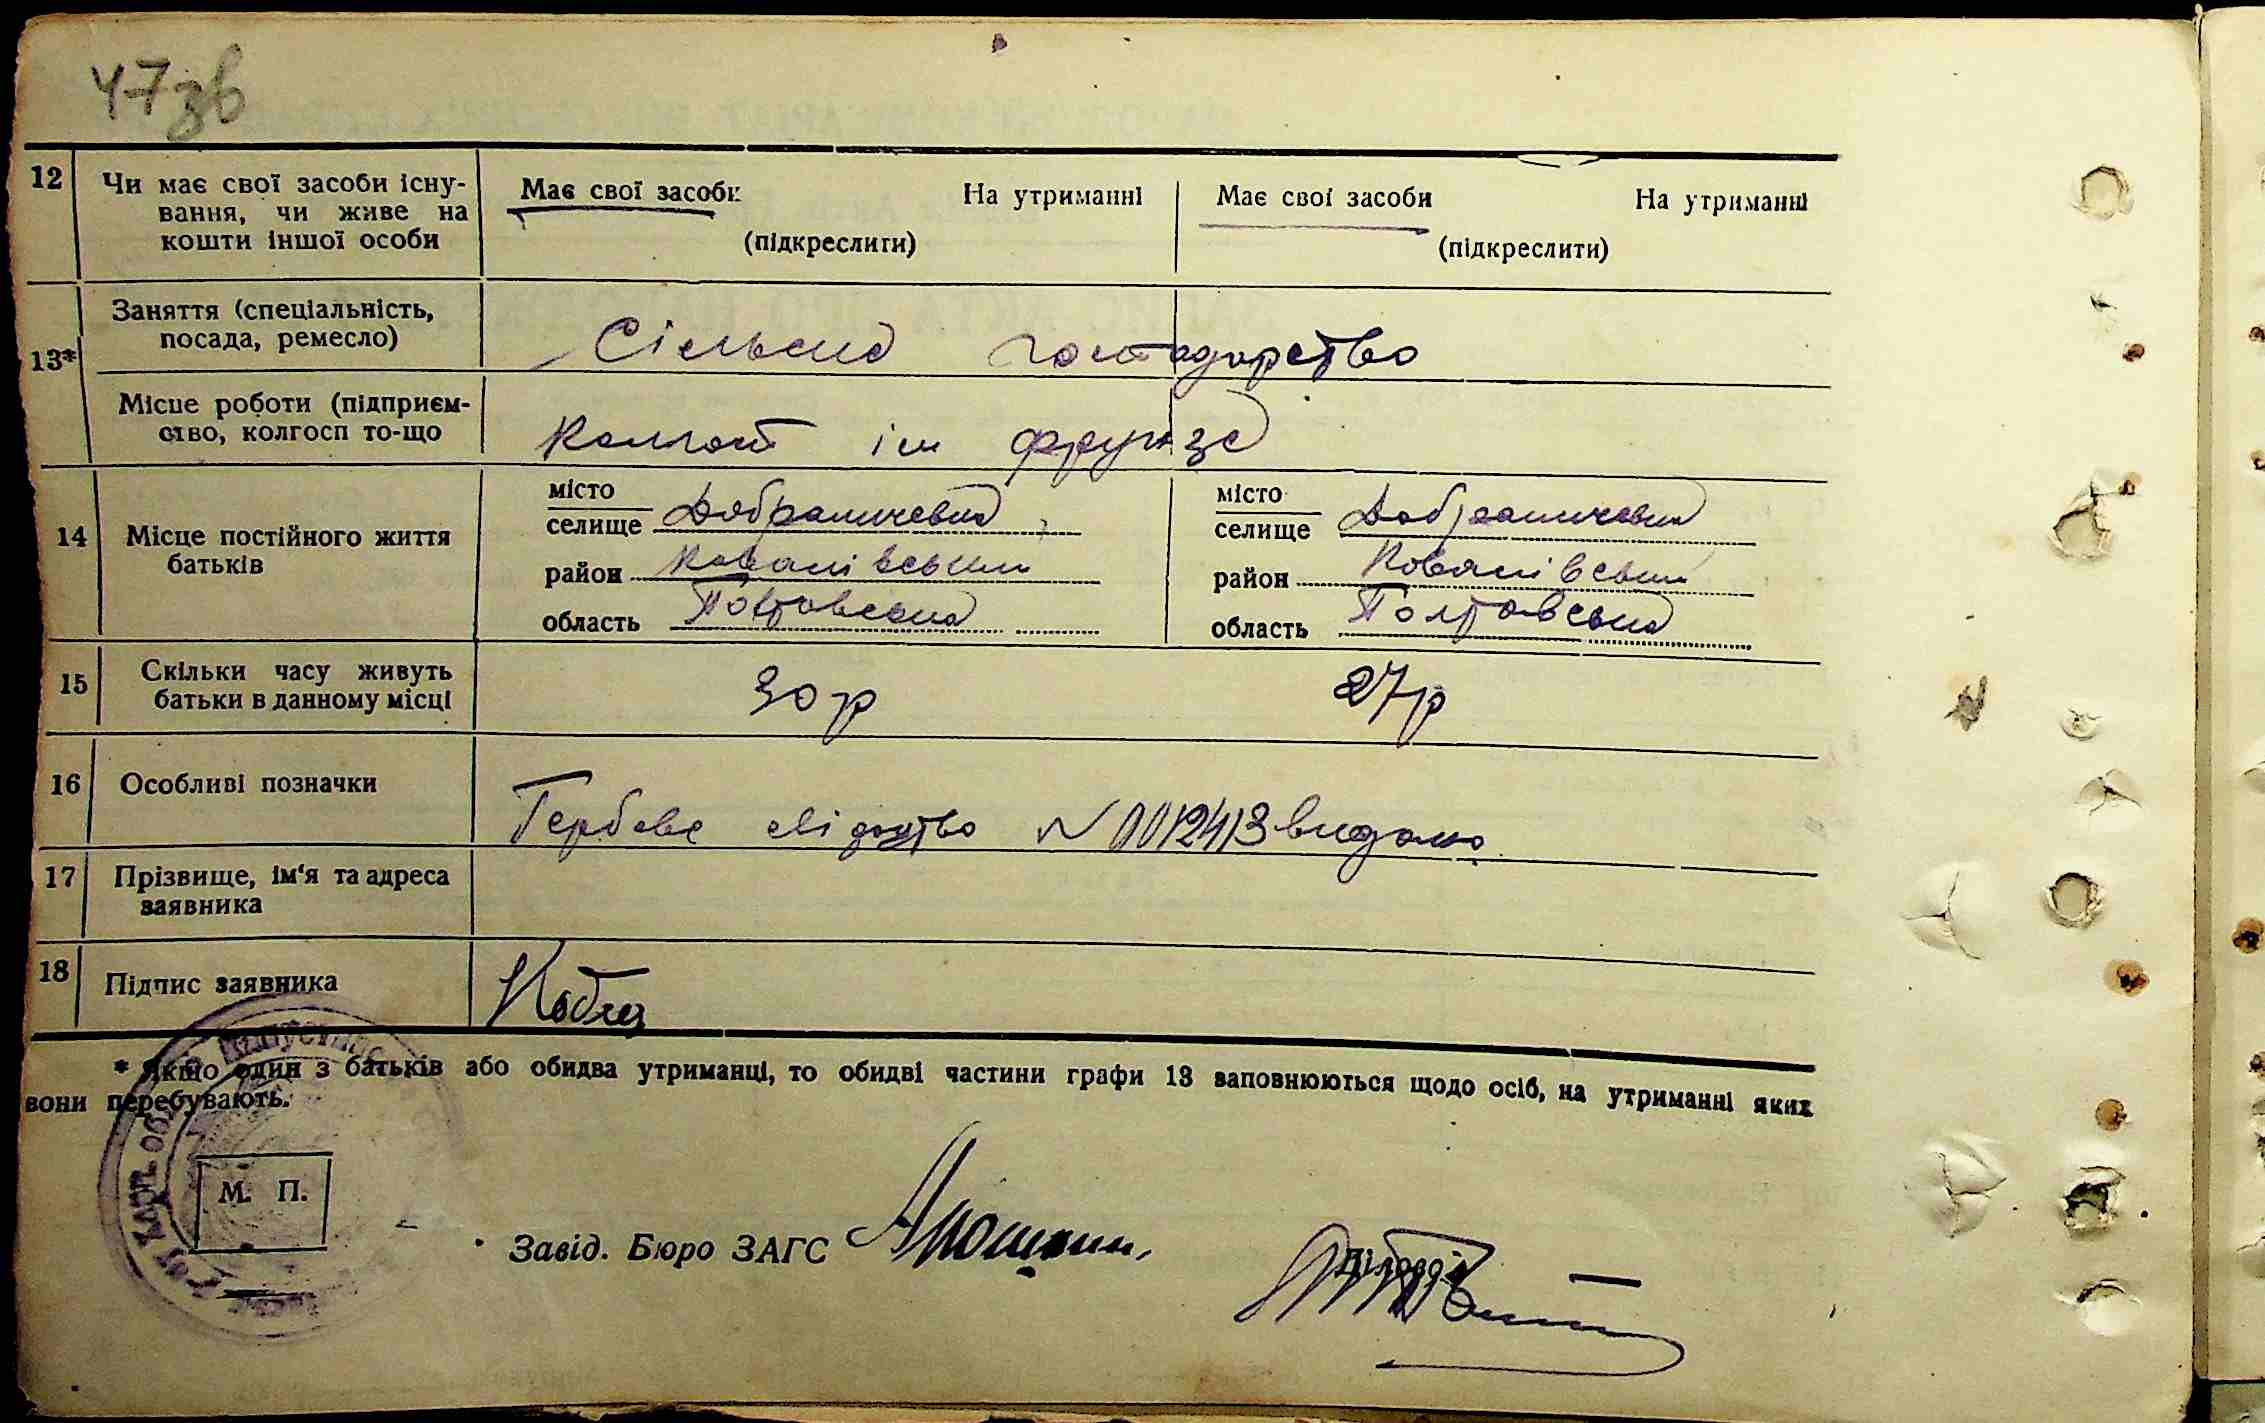 47зв
12 Чи має свої засоби існу-
вання, чи живе на
кошти іншої особи
Має свої засоби На утриманні
(підкреслити)
Має свої засоби На утриманні
(підкреслити)
13* Заняття (спеціальність,
посада, ремесло)
Сільске господарство
Місце роботи (підприєм-
ство, колгосп то-що
Колгосп ім Фрунзе
14 Місце постійного життя
батьків
місто
селище Добраничевка
район
область Полтовська
місто
селище Добраничевка
район
область Полтовська
15 Скільки часу живуть
батьки в данному місці
30 р
27 р
16 Особливі позначки
Гербове свідоцтво N 0012413 видано
17 Прізвище, ім'я та адреса
заявника
18 Підпис заявника
* Якщо один з батьків або обидва утриманці, то обидві частини графи 13 заповнюються щодо осіб, на утриманні яких
вони перебувають.
М. П.
Завід. Бюро ЗАГС